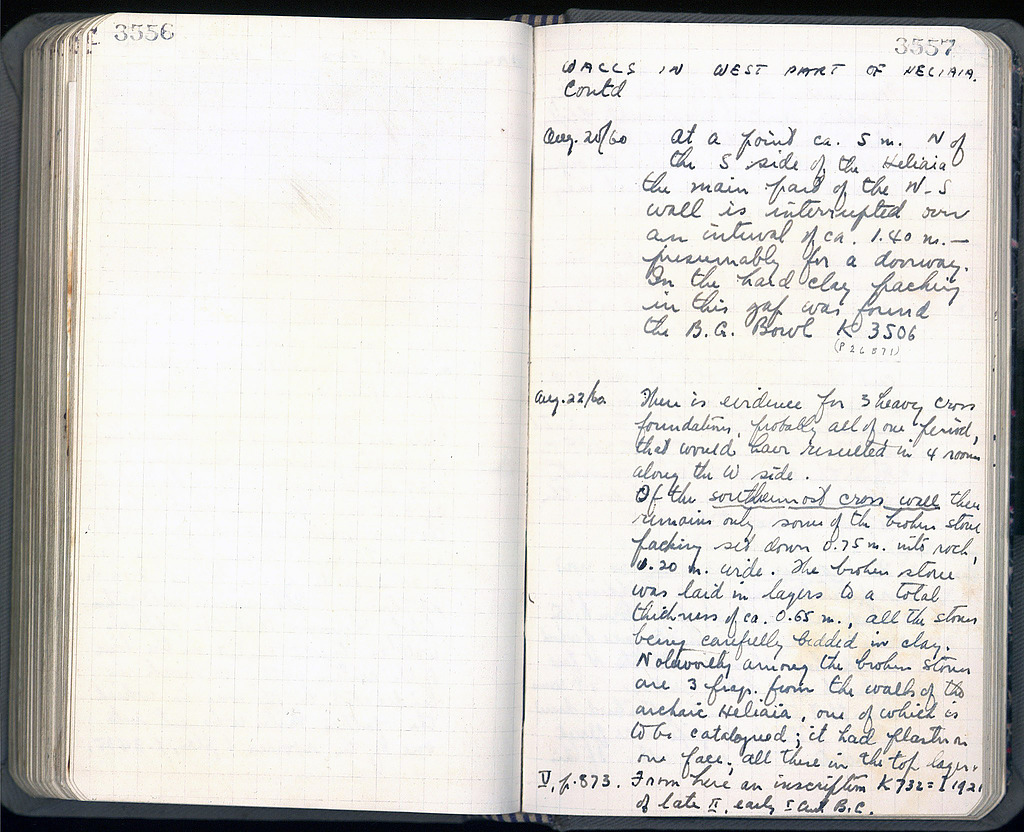 3556
3557
WALLS IN WEST PART OF HELIAIA.
Contd
Aug. 20/60 At a point ca. 5 m. N of
the S side of the Heliaia
the main part of the N-S
wall is interrupted over
an interval of ca. 1.40 m. —
presumably for a doorway.
In the hard clay packing
in this gap was found
the B.G. Bowl K 3506
(P 26071)
Aug. 22/60 There is evidence for 3 heavy cross
foundations, probably all of one period,
that would have resulted in 4 rooms
along the W side.
Of the southernmost cross wall there
remains only some of the broken stone
packing set down 0.75 m. into rock,
1.20 m. wide. The broken stone
was laid in layers to a total
thickness of ca. 0.65 m., all the stones
being carefully bedded in clay.
Noteworthy among the broken stones
are 3 frags. from the walls of the
archaic Heliaia, one of which is
to be catalogued; it had plaster on
one face; all these in the top layer.
V, p. 873. From here an inscription K 732 = I 1921
of late II, early I cent B.C.